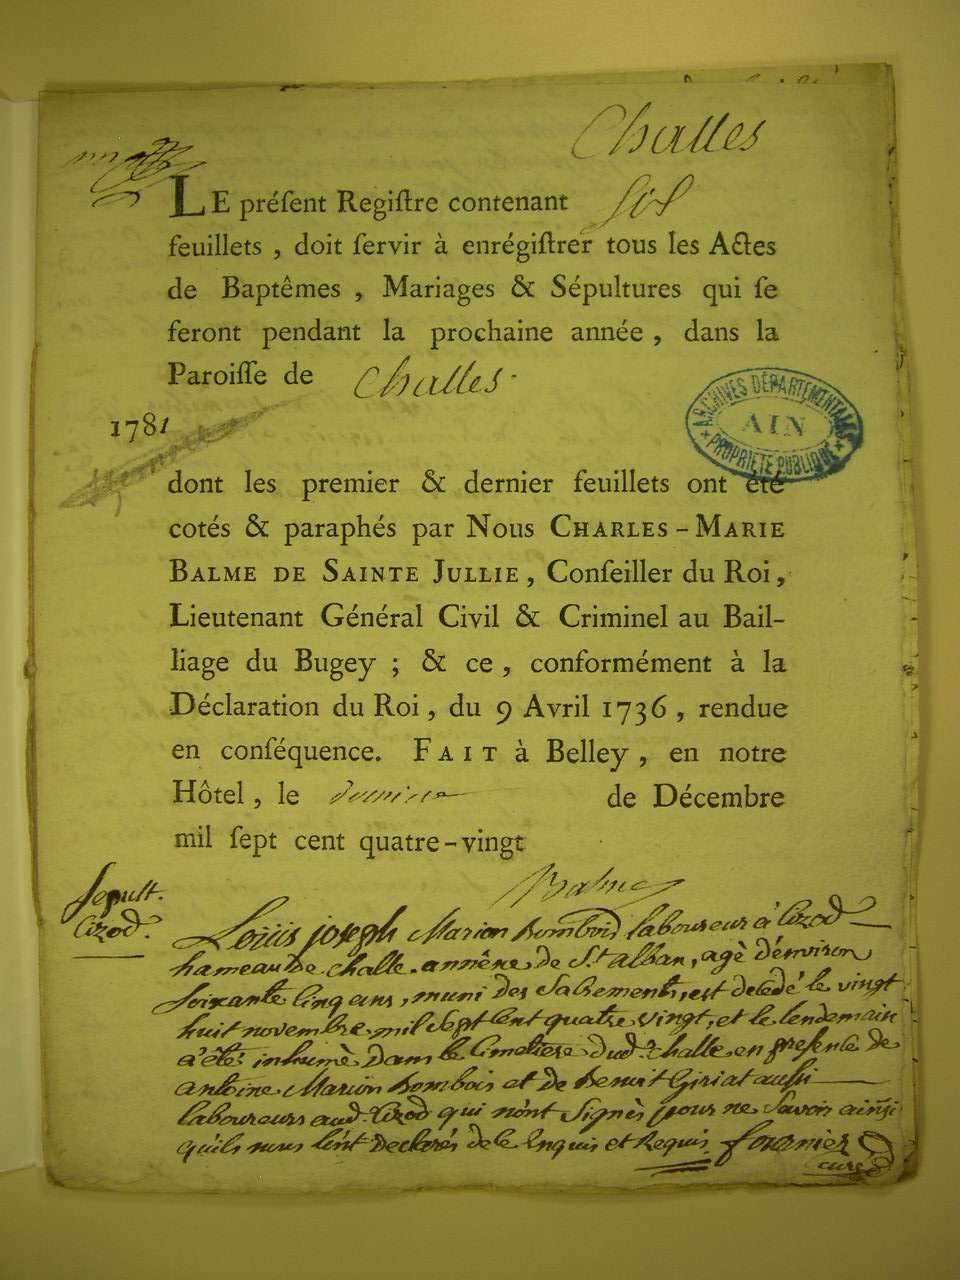 Challes
LE préſent Regiſtre contenant six
feuillets, doit ſervir à enrégiſtrer tous les Actes
de Baptêmes, Mariages & Sépultures qui ſe
feront pendant la prochaine année, dans la
Paroiſſe de Challes.
1781
ARCHIVES DÉPARTEMENTALES
AIN
PROPRIÉTÉ PUBLIQUE
dont les premier & dernier feuillets ont été
cotés & paraphés par Nous CHARLES-MARIE
BALME DE SAINTE JULLIE, Conſeiller du Roi,
Lieutenant Général Civil & Criminel au Bail-
liage du Bugey ; & ce, conformément à la
Déclaration du Roi, du 9 Avril 1736, rendue
en conſéquence. FAIT à Belley, en notre
Hôtel, le de Décembre
mil ſept cent quatre-vingt
Balme
sepult.
Cizod.
Louis joseph Marion Bombois laboureur à Cizod
hameau de Challe. annêxe de St. alban, agè d'environ
soixante cinq ans, muni des sacrements, est decédé le vingt
huit novembre mil sept cent quatre vingt, et le lendemain
a été inhumè dans le Cimetiere dud. Challe en presence de
antoine Marion Bombois et de Benoit Giriat aussi
laboureurs aud. Cizod qui n'ont signès pour ne savoir ainsi
qu'ils nous l'ont declarés de ce Enquis et Requis. fournier
curé